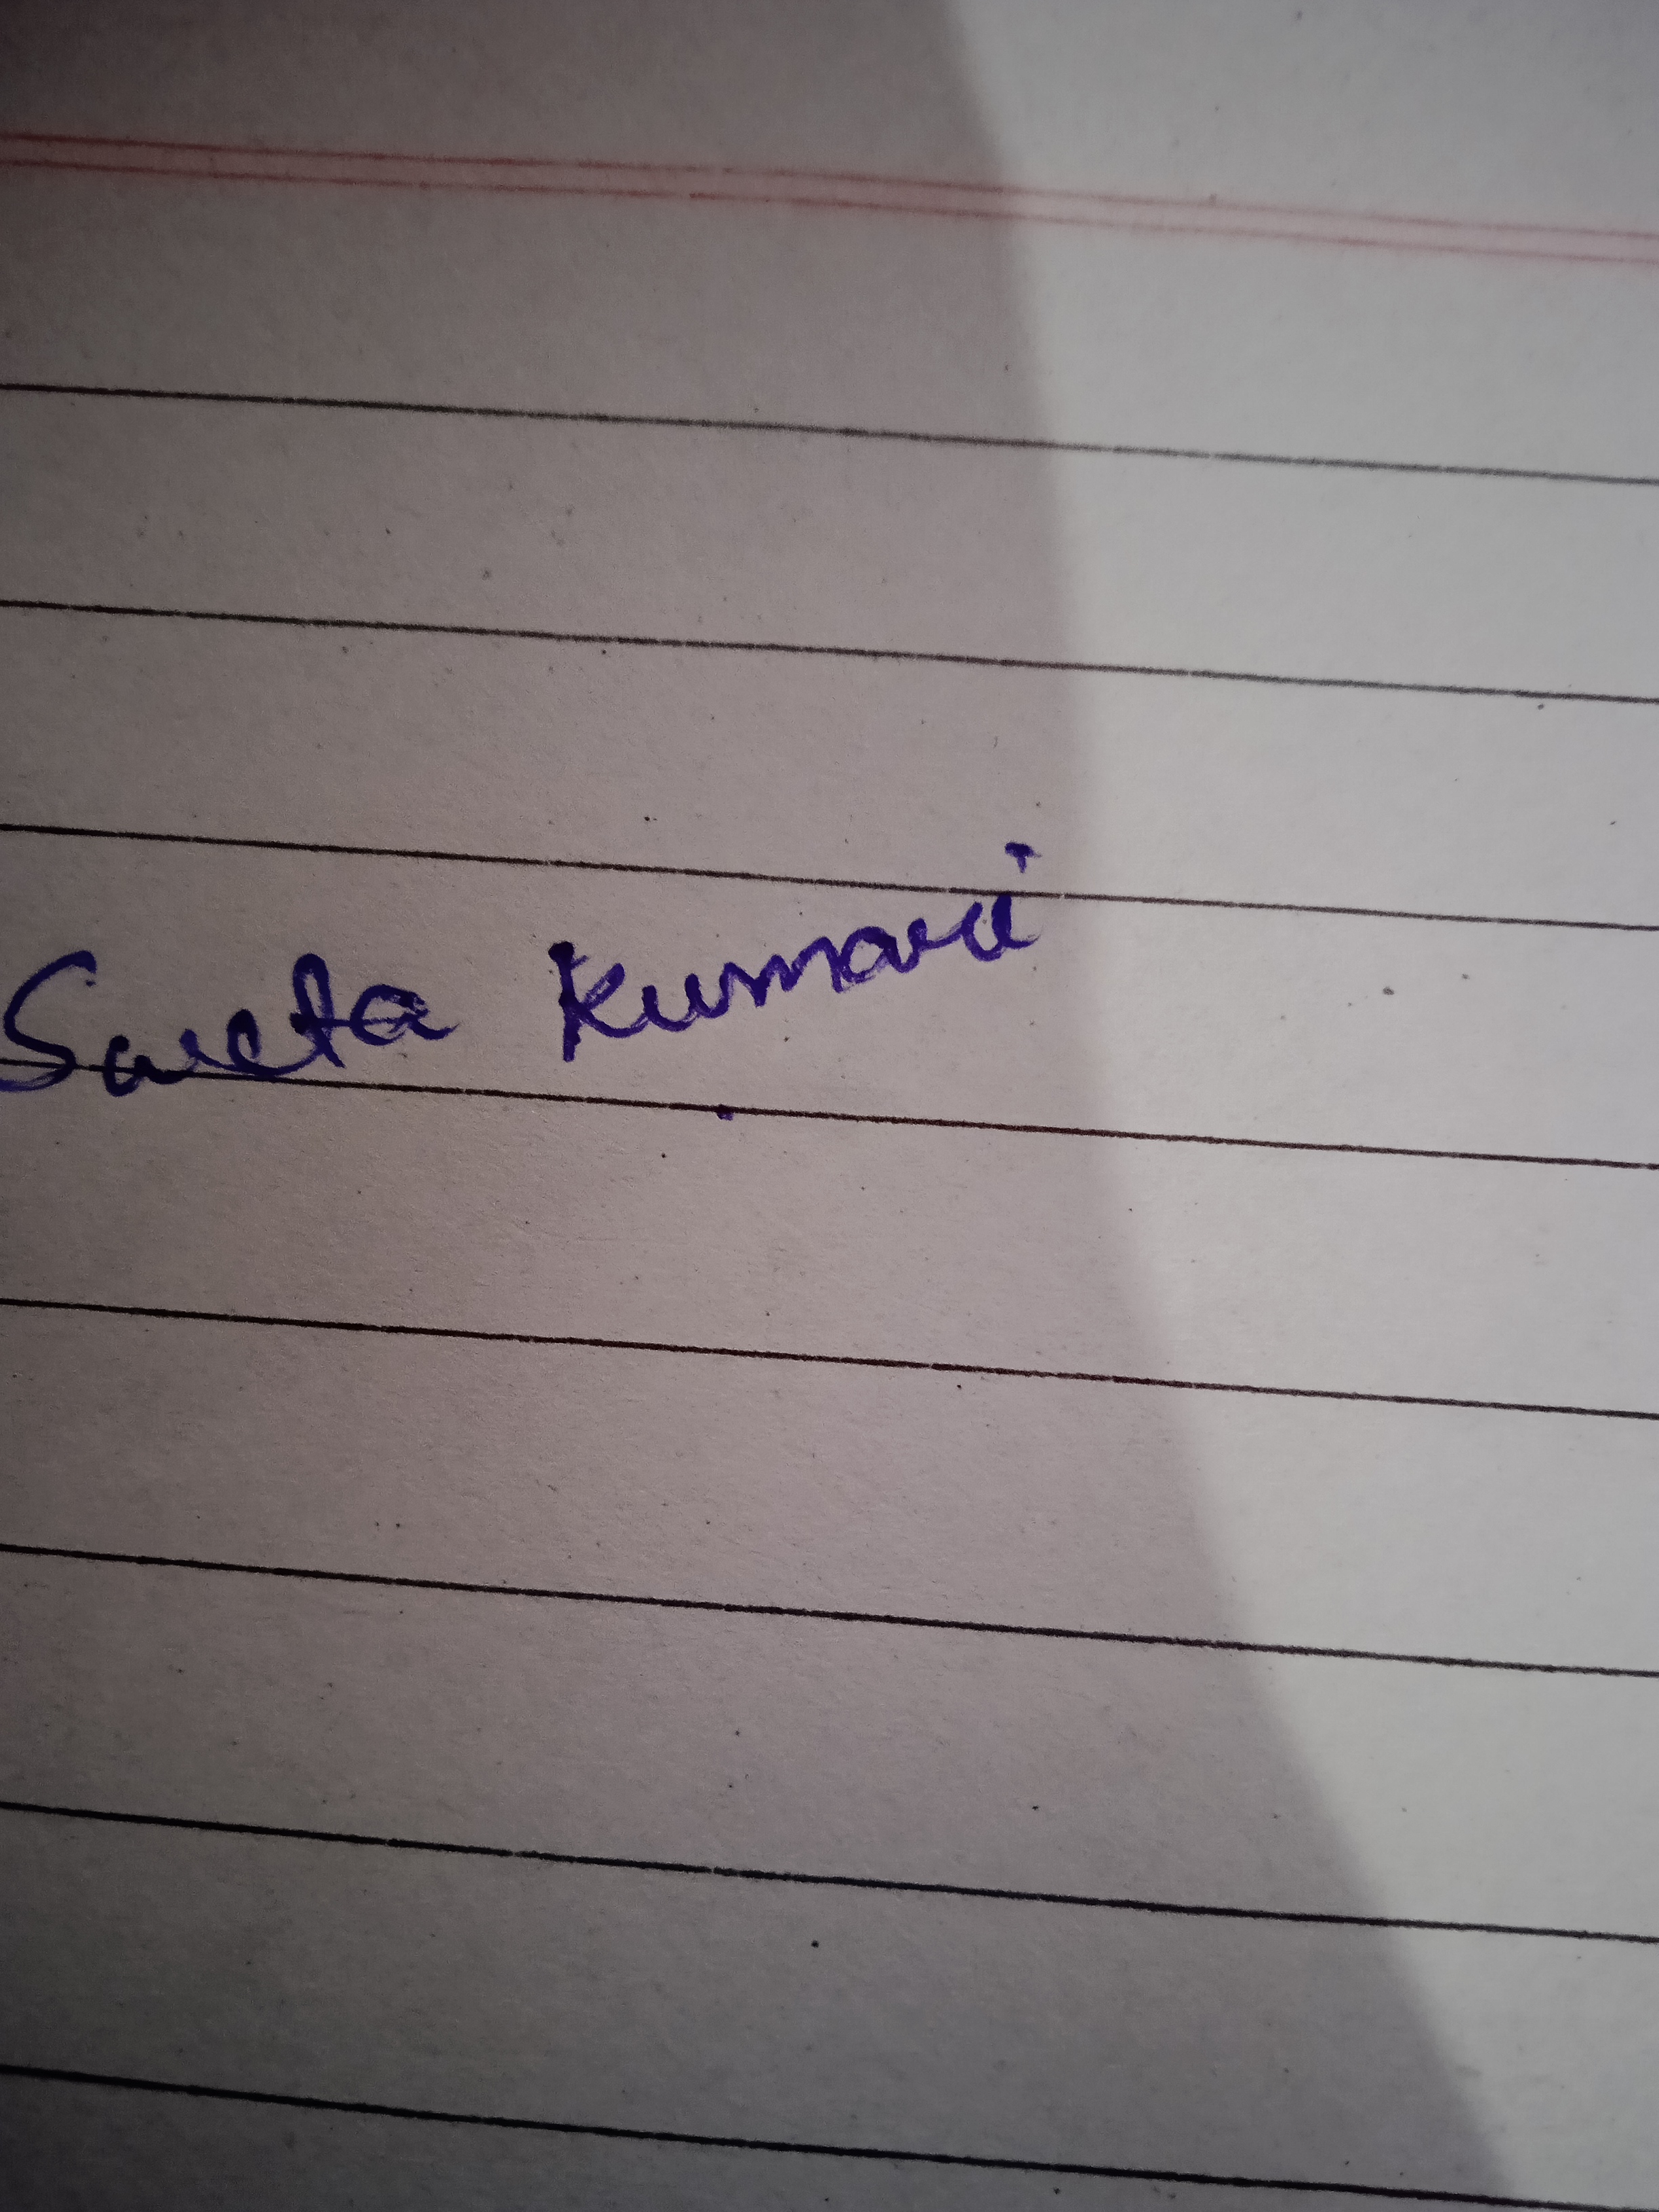 Sareta Kumari